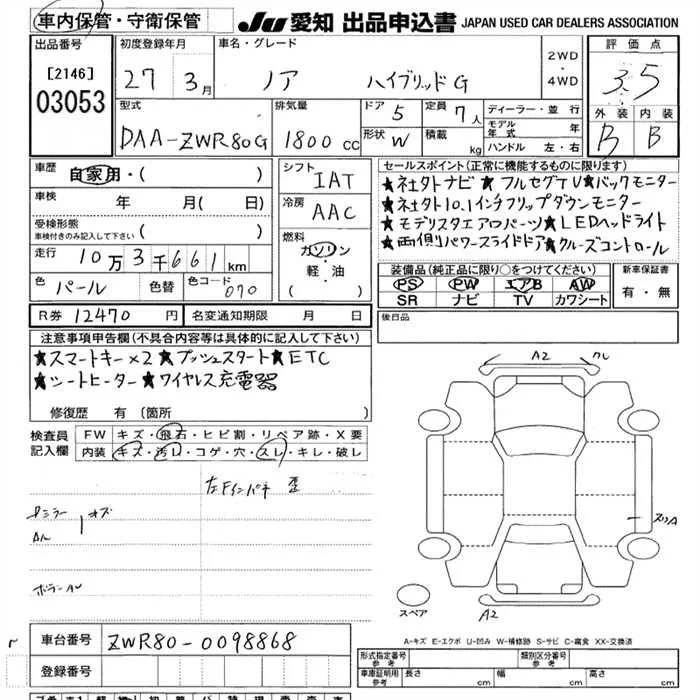 車内保管・守衛保管
JU 愛知 出品申込書 JAPAN USED CAR DEALERS ASSOCIATION
出品番号 初度登録年月 車名・グレード 2WD・4WD 評価点
[2146]
03053
27 3月 ノア ハイブリッドG 3.5
型式 排気量 ドア 5 定員 7人 ディーラー・並行 外装 内装
DAA-ZWR80G 1800cc 形状 W 積載 kg モデル年式 年 B B
ハンドル 左・右
車歴 自家用・( ) シフト IAT セールスポイント(正常に機能するものに限ります)
★社外ナビ★フルセグTV★バックモニター
車検 年 月( 日) 冷房 AAC ★社外10.1インチフリップダウンモニター
受検形態 車検付きのみ記入して下さい ( ) 燃料 ガソリン・軽・油 ( )
★モデリスタエアロパーツ★LEDヘッドライト
★両側パワースライドドア★クルーズコントロール
走行 10万3千661km
装備品(純正品に限り○をつけてください) 新車保証書
色 パール 色替 色コード 070 PS PW エアB AW 有・無
SR ナビ TV カワシート
R券 12470円 名変通知期限 月 日 後日品
注意事項申告欄(不具合内容等は具体的に記入して下さい)
★スマートキー×2★プッシュスタート★ETC
★シートヒーター★ワイヤレス充電器
修復歴 有(箇所 )
A2
検査員記入欄 FW キズ・飛石・ヒビ割・リペア跡・X要
内装 キズ・汚レ・コゲ・穴・スレ・キレ・破レ
左Fインパネ
ミラー
A
スペア A2
A-キズ E-エクボ U-凹み W-補修跡 S-サビ C-腐食 XX-交換済
車台番号 ZWR80-0098868
登録番号
形式指定番号 参考 類別区分番号 参考
車庫証明用 参考 長さ cm 幅 cm 高さ cm